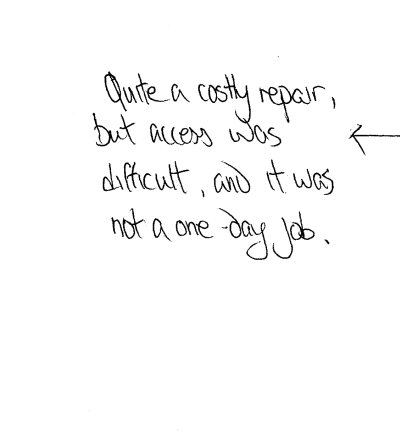 Quite a costly repair,
but access was
difficult, and it was
not a one-day job.